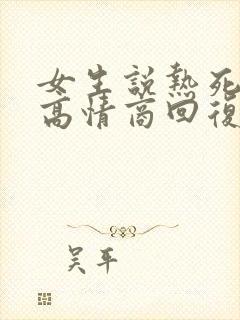 女生說熱死
高情商回復
吴平